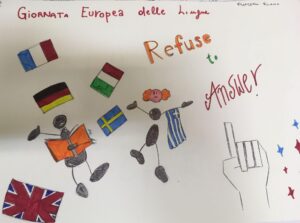 Giornata Europea delle Lingue
Refuse
to
Answer